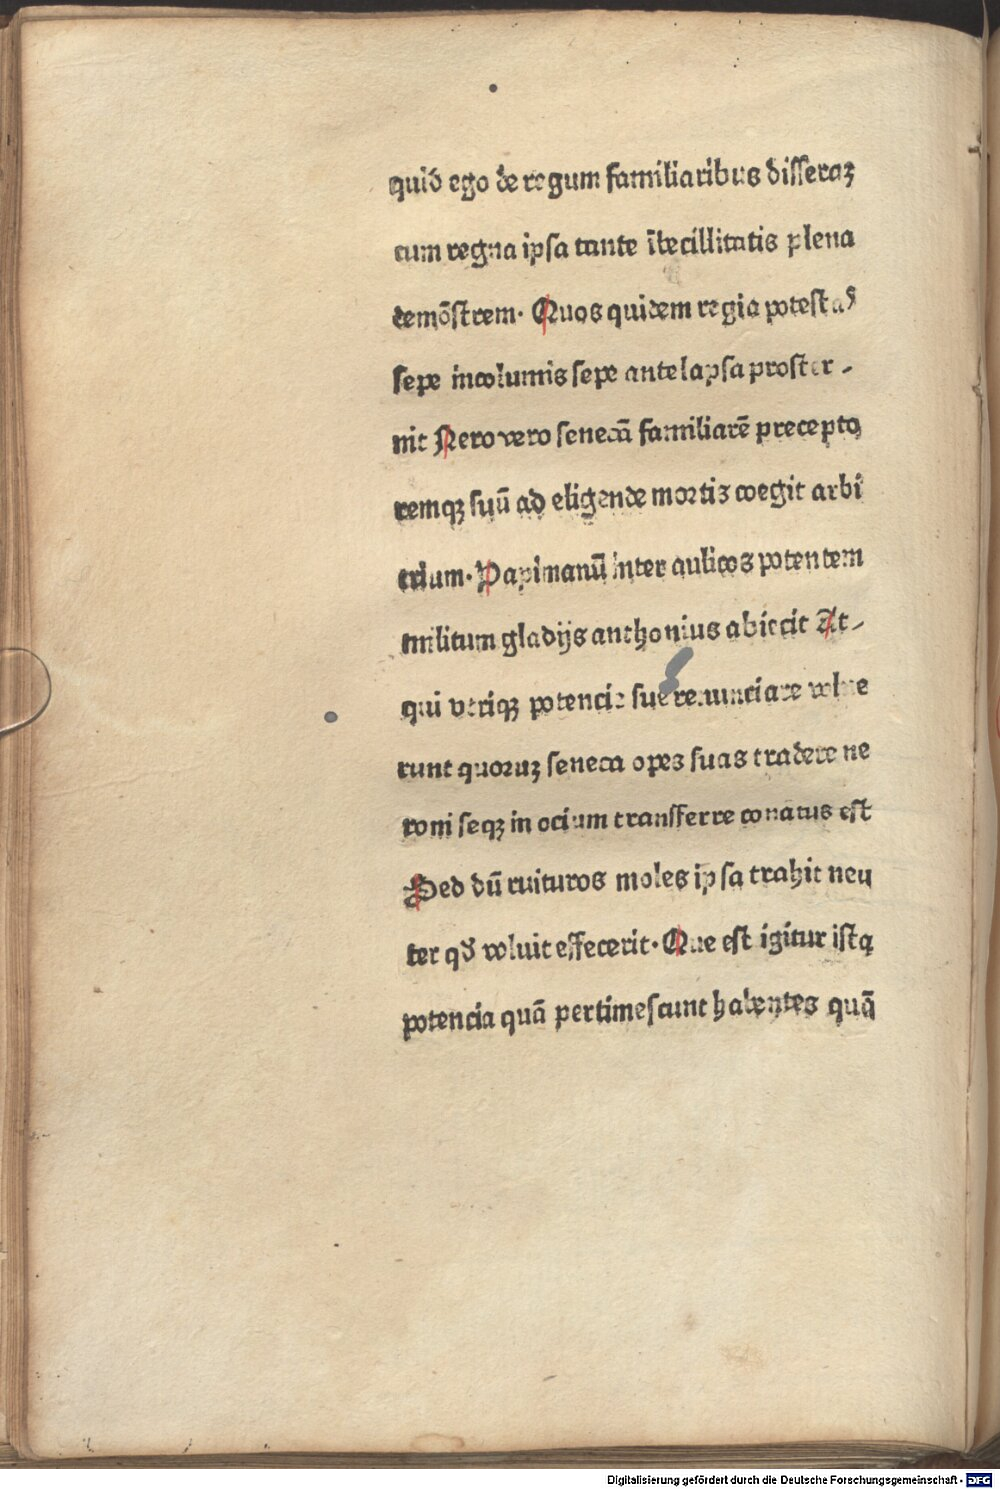 quid ego de regum familiaribus disseraꝫ
cum regna ipsa tante ībecillitatis plena
demōstrem. Quos quidem regia potestas
sepe incolumis sepe ante lapsa proster-
nit Nero vero senecā familiarē precepto
remqꝫ suū ad eligende mortis coegit arbi
trium. Papimanū inter aulicos potentem
militum gladijs anthonius abiecit At-
qui vtriqꝫ potencie sue renunciare volue
runt quoruꝫ seneca opes suas tradere ne
roni seqꝫ in ocium transferre conatus est
Sed dū ruituros moles ipsa trahit neu
ter qd voluit effecerit. Que est igitur ista
potencia quā pertimescunt habentes quā
Digitalisierung gefördert durch die Deutsche Forschungsgemeinschaft - DFG